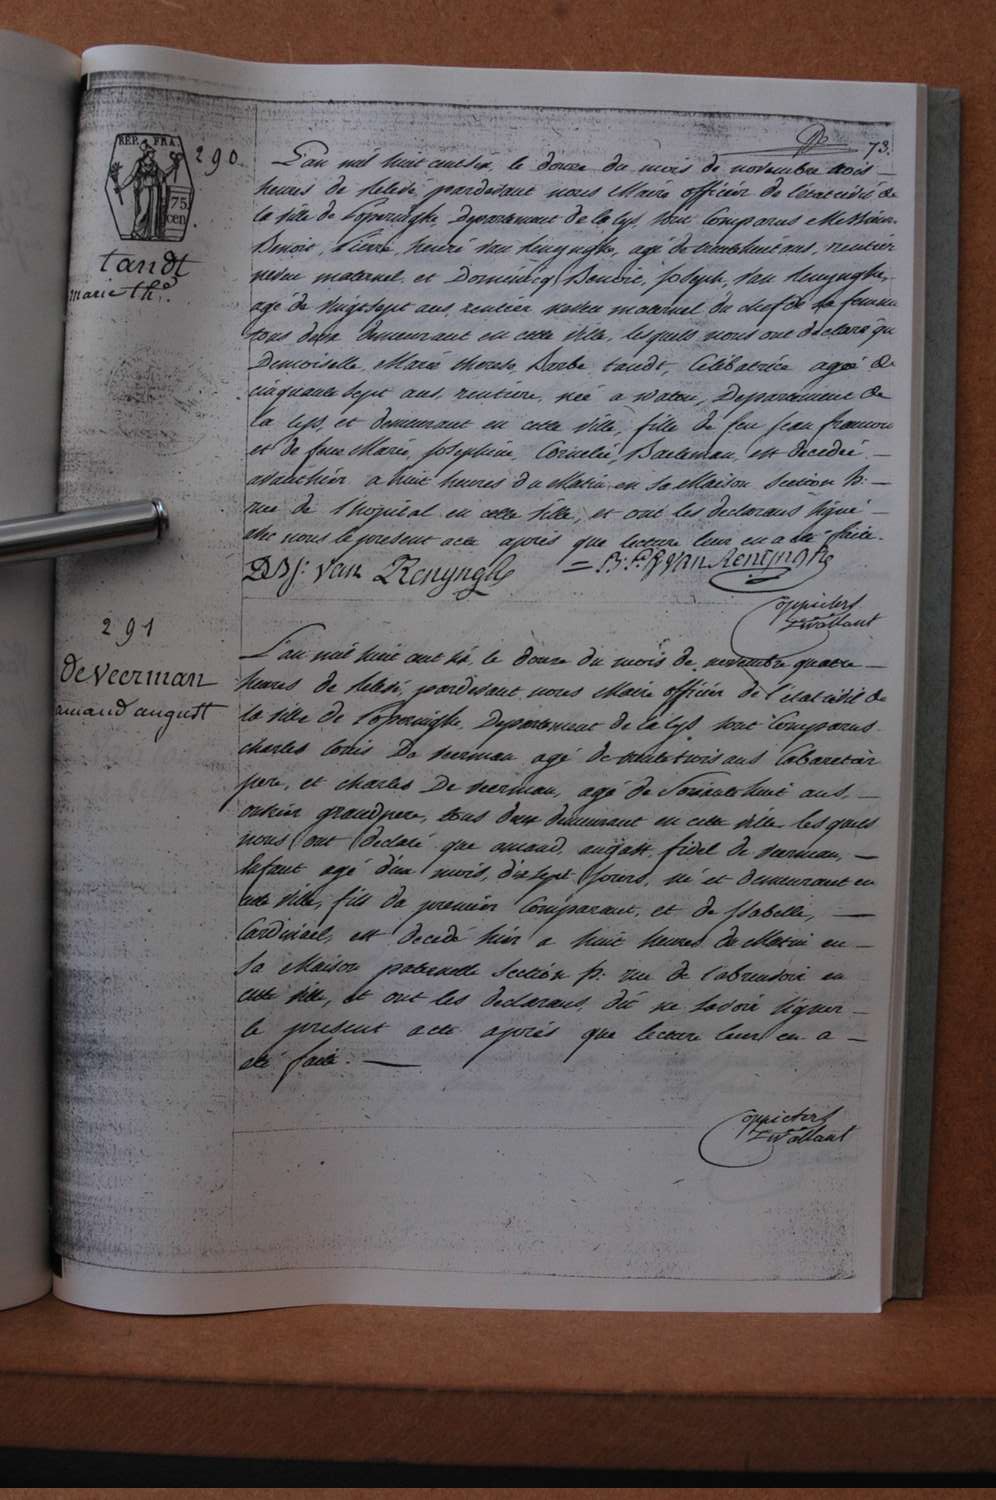 73.
REP. FRA.
75
cen
290.
tandt
marie th.e
L'an mil huit cent six, le douze du mois de novembre trois —
heures de relevé, pardevant nous Maire officier de l'état civil de
la ville de Poperinghe Departement de la Lys, sont Comparus Messieurs
Benoit, Pierre, henri van Renynghe, agé de trentehuit ans, rentier
neveu maternel, et Dominicq, Benoit, joseph, van Renynghe,
agé de vingtsept ans, rentier neveu maternel du chef de sa femme
tous deux demeurant en cette ville, lesquels nous ont declaré qu
Demoiselle, Marie therese, Barbe, tandt, Célibatrice agée de
cinquante sept ans, rentiere, née a watou, Departement de
la Lys, et demeurant en cette ville, fille de feu jean francois
et de feue Marie, josephine, Cornelie, Baeleman, est decedée —
avanthier a huit heures du Matin en sa Maison section b: —
rue de l'hopital en cette ville, et ont les declarans signé —
avec nous le present acte après que lecture leur en a été faite.
D B J: van Renynghe = B: P: h van Renynghe
Coppieters
tWallant
291
De veerman
amand august
L'an mil huit cent six, le douze du mois de novembre quatre —
heures de relevé, pardevant nous Maire officier de l'état civil de
la ville de Poperinghe, Departement de la Lys sont Comparus
charles Louis De veerman agé de trentetrois ans Cabaretier
pere, et charles De veerman, agé de soixantehuit ans, —
ouvrier grandpere, tous deux demeurant en cette ville lesquels
nous ont declaré que amand, august, fidel de veerman, —
Enfant agé d'un mois, dixsept jours, né et demeurant en
cette ville, fils du premier Comparant, et de Isabelle, —
Cardinael, est decedé hier a huit heures du Matin en —
sa Maison paternelle section b: rue de l'abreuvoir en
cette ville, et ont les declarans, dit ne savoir signer —
le present acte après que lecture leur en a —
été faite. —
Coppieters
tWallant